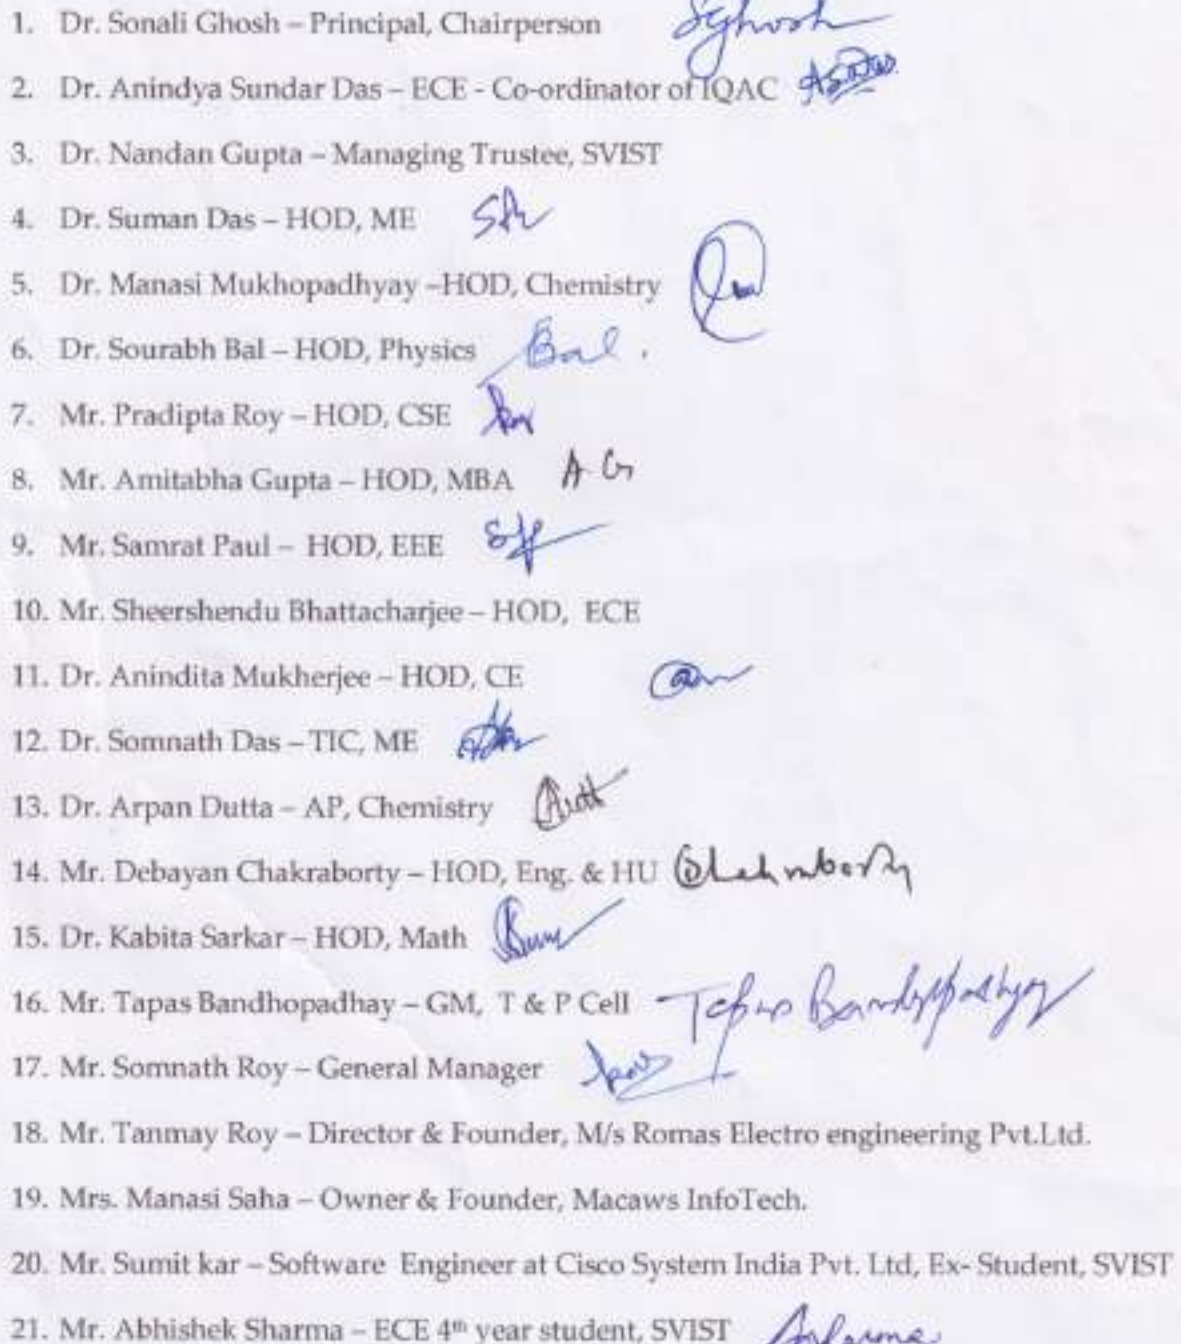 1. Dr. Sonali Ghosh – Principal, Chairperson SGhosh
2. Dr. Anindya Sundar Das – ECE - Co-ordinator of IQAC
3. Dr. Nandan Gupta – Managing Trustee, SVIST
4. Dr. Suman Das – HOD, ME
5. Dr. Manasi Mukhopadhyay –HOD, Chemistry
6. Dr. Sourabh Bal – HOD, Physics Bal.
7. Mr. Pradipta Roy – HOD, CSE
8. Mr. Amitabha Gupta – HOD, MBA A G
9. Mr. Samrat Paul – HOD, EEE
10. Mr. Sheershendu Bhattacharjee – HOD, ECE
11. Dr. Anindita Mukherjee – HOD, CE
12. Dr. Somnath Das – TIC, ME
13. Dr. Arpan Dutta – AP, Chemistry
14. Mr. Debayan Chakraborty – HOD, Eng. & HU
15. Dr. Kabita Sarkar – HOD, Math
16. Mr. Tapas Bandhopadhay – GM, T & P Cell Tapas Bandyopadhyay
17. Mr. Somnath Roy – General Manager
18. Mr. Tanmay Roy – Director & Founder, M/s Romas Electro engineering Pvt.Ltd.
19. Mrs. Manasi Saha – Owner & Founder, Macaws InfoTech.
20. Mr. Sumit kar – Software Engineer at Cisco System India Pvt. Ltd, Ex- Student, SVIST
21. Mr. Abhishek Sharma – ECE 4th year student, SVIST